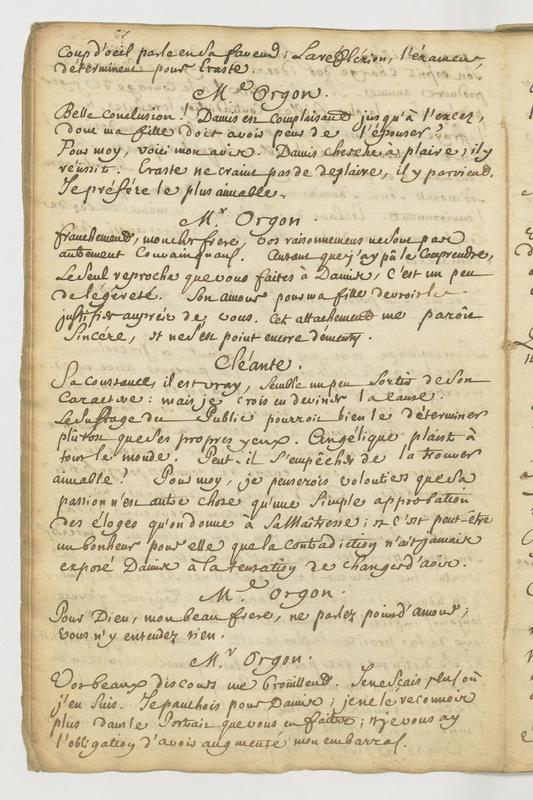 Coup d'oeil parle en sa faveur; La reflexion, l'éxamen,
déterminent pour Eraste.
Me. Orgon.
Belle conclusion! Damis est complaisant jusqu'à l'excez,
donc ma fille doit avoir peur de l'épouser?
Pour moy, voici mon avis. Damis cherche à plaire; il y
réussit. Eraste ne craint pas de deplaire, il y parvient.
Je préfére le plus aimable.
Mr. Orgon.
franchement, mon cher frere, vos raisonnemens ne sont pas
autrement convainquans. Autant que j'ay pû le comprendre,
Le seul reproche que vous faites à Damis, C'est un peu
de légéreté. Son amour pour ma fille devroit le
justifier auprès de vous. Cet attachement me paroît
Sincére, et ne s'est point encore démenty.
Cléante.
Sa constance, il est vray, semble un peu sortir de son
Caractere: mais je crois en deviner la cause.
Le suffrage du Public pourroit bien le déterminer
plûtost que ses propres yeux. Angélique plaist à
tout le monde. Peut-il s'empêcher de la trouver
aimable? Pour moy, je penserois volontiers que sa
passion n'est autre chose qu'une simple approbation
des éloges qu'on donne à sa Maîtresse; et c'est peut-être
un bonheur pour elle que la contradiction n'ait jamais
exposé Damis à la tentation de changer d'avis.
Me. Orgon.
Pour Dieu, mon beau frere, ne parlez point d'amour;
vous n'y entendez rien.
Mr. Orgon.
Vos beaux discours me brouillent. Je ne sçais plus où
j'en suis. Je panchois pour Damis; je ne le reconnois
plus dans le Portrait que vous en faites; et je vous ay
l'obligation d'avoir augmenté mon embarras.